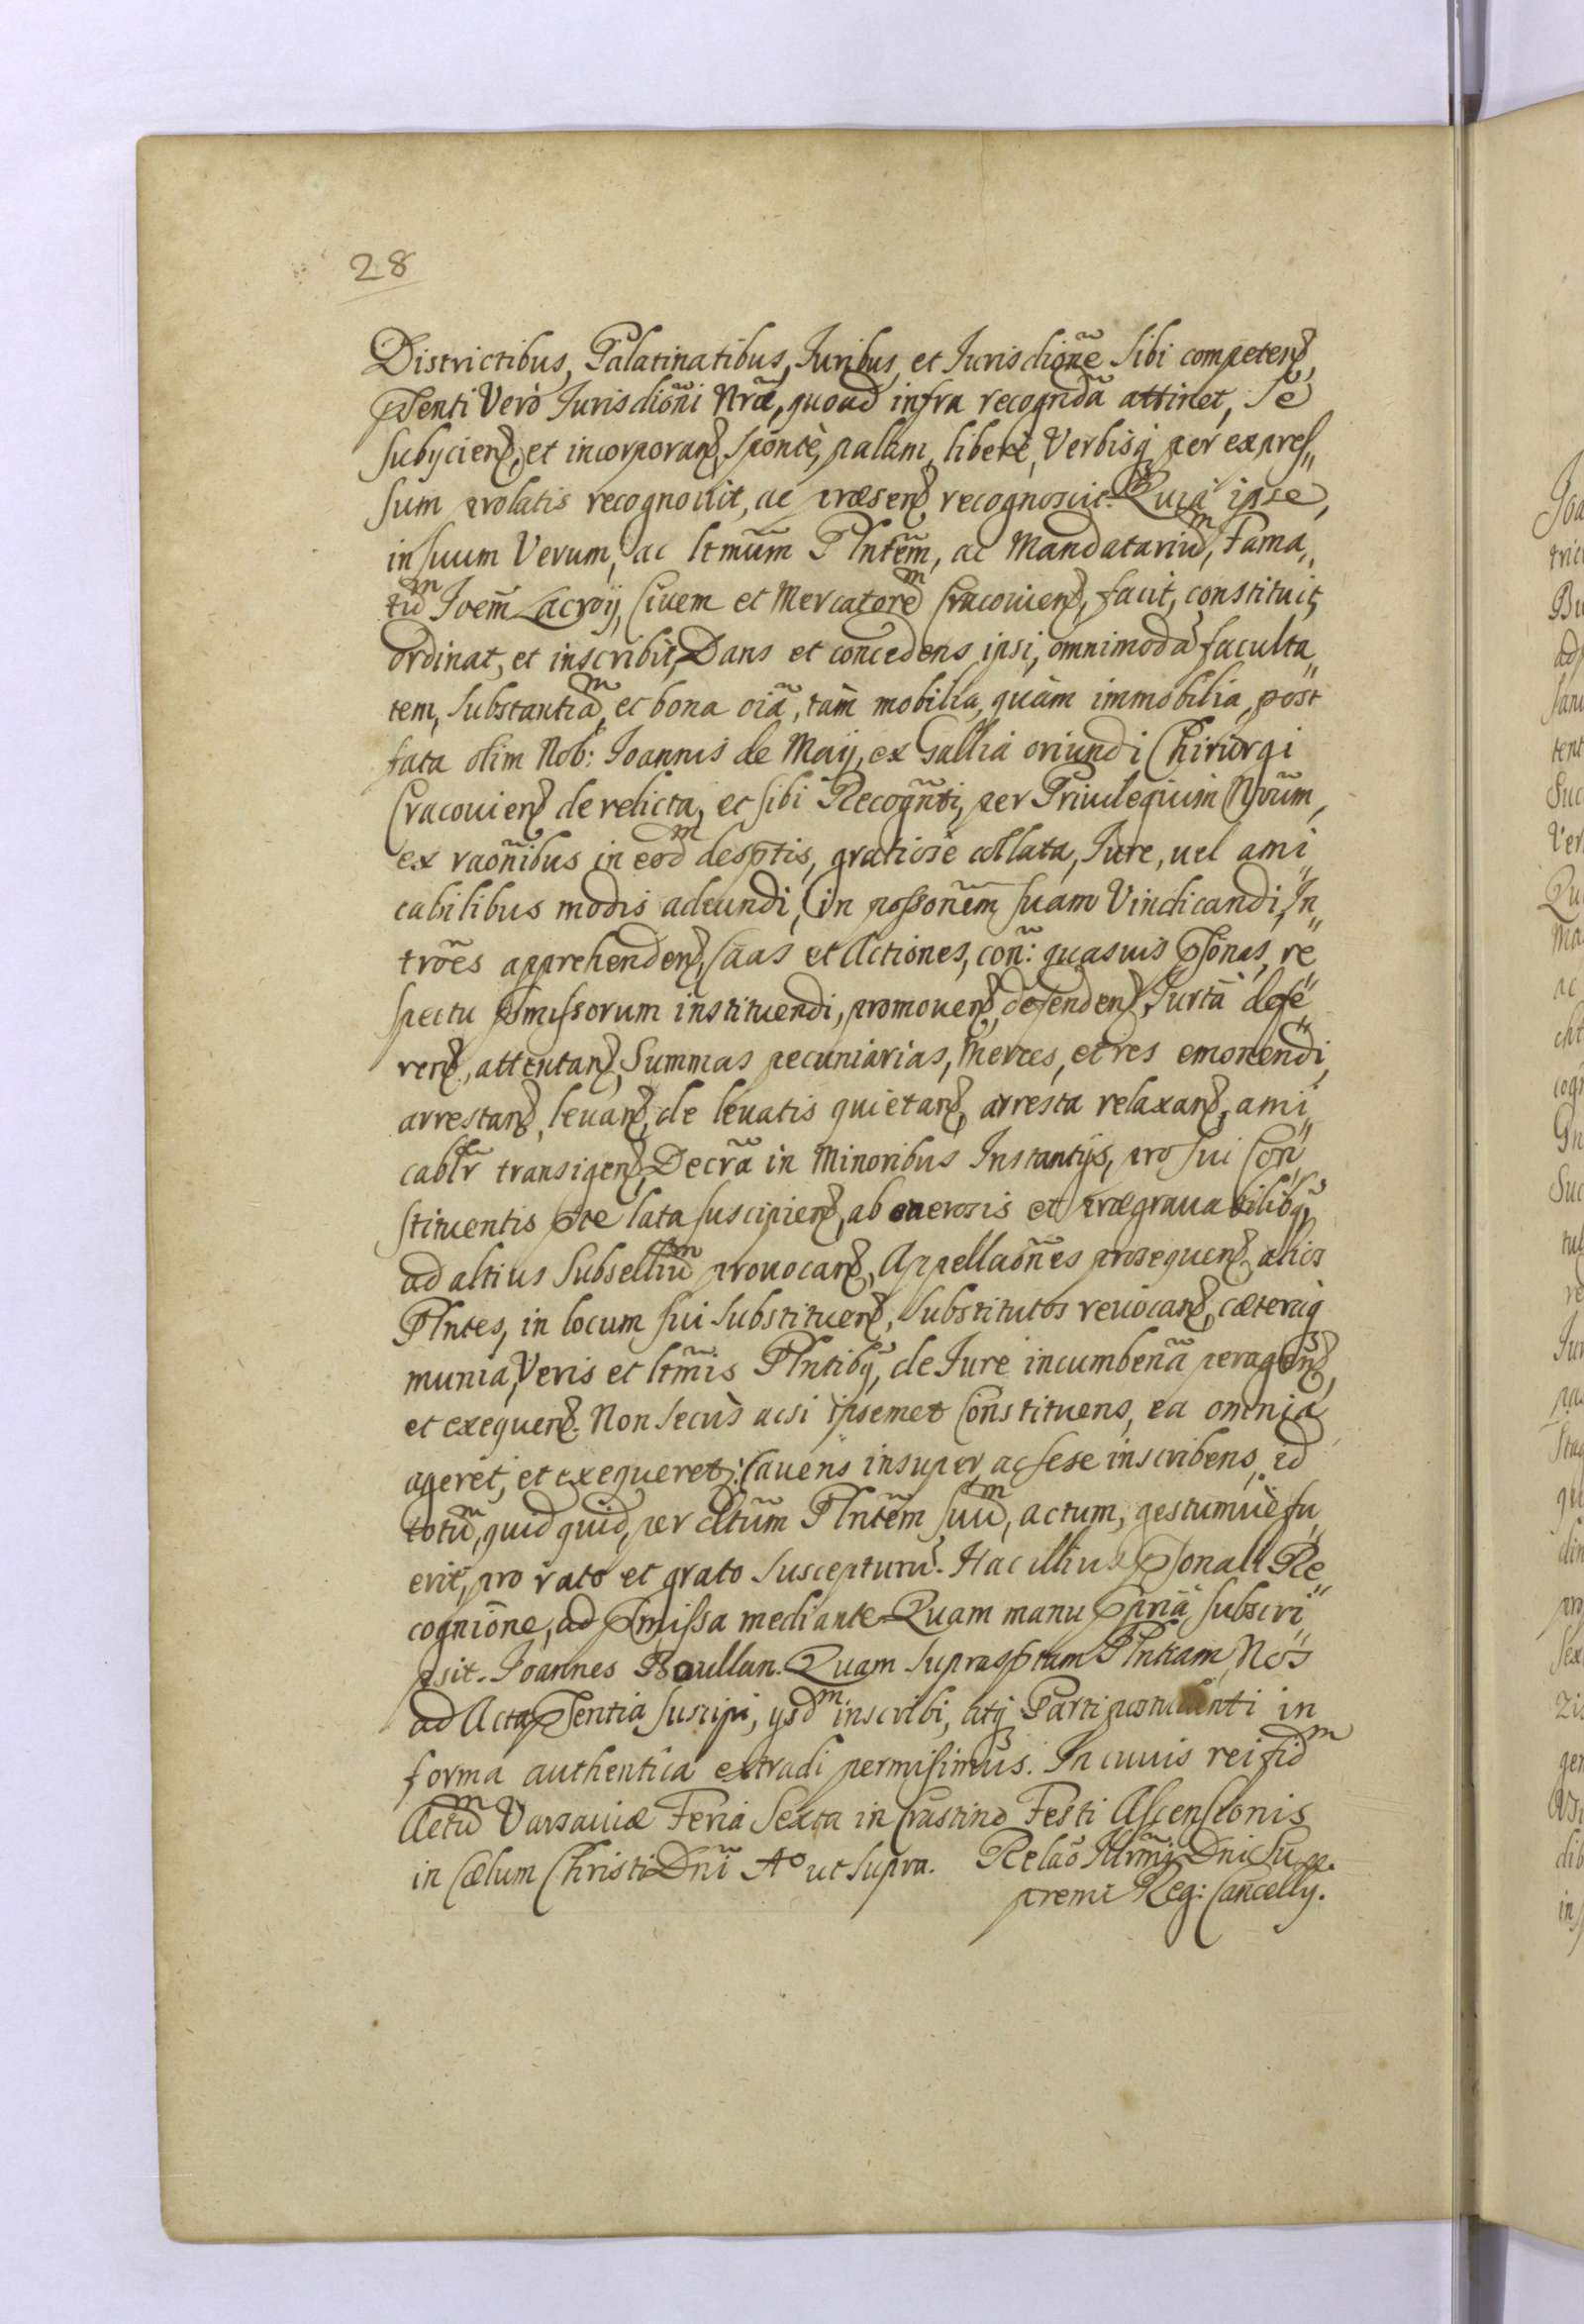 28
Districtibus, Palatinatibus, Iuribus, et Iurisdiōne sibi competen̄,
Pn̄ti Verò Iurisdiōni Nr̄æ, quoad infra recognīdā attinet, Se
subycien̄, et incorporan̄, sponte, palam, liberè, Verbisq̨ per expres„
sum prolatis recognovit, ac præsen̄ recognoscit. Quia ipse,
in suum Verum, ac ltm̄um Plnt̄em, ac Mandatariū, Fama„
tū Ioem̄ Lacroij, Civem et Mercatorē Cracovien̄, facit, constituit,
ordinat, et inscribit, Dans et concedens ipsi, omnimodā faculta„
tem, substantiā, et bona oīa, tàm mobilia, quàm immobilia, post
fata olim Nob: Ioannis de Maij, ex Gallia oriundi Chirurgi
Cracovien̄ derelicta, et sibi Recogn̄ti, per Privilegium Nr̄um,
ex raōnibus in eodm̄ desp̄tis, gratiose collata, Iure, uel ami„
cabilibus modis adeundi, in possōnem suam Vindicandi, In„
trōes apprehenden̄, Cāas et Actiones, con̄: quasuis Psōnas, re„
spectu Pmissorum instituendi, promoven̄, defenden̄, Iurta defe„
ren̄, attentan̄, Summas pecuniarias, Merces, et res emonendi,
arrestan̄, levan̄, de levatis quietan̄, arresta relaxan̄, ami„
cablr̄ transigen̄, Decr̄a in Minoribus Instantijs, pro sui Con„
stituentis pte lata suscipien̄, ab onerosis et prægravabilibq̨
ad altius Subselliū provocan̄, Appellaōnes prosequen̄ alios
Plntes, in locum sui substituen̄, substitutos revocan̄, cæteraq̨
munia, Veris et ltm̄is Plntibq̨, de Iure incumben̄a peragen̄,
et exequen̄. Non secùs acsi ipsemet Constituens, ea omnia
ageret, et exequeret: Cavens insuper, ac sese inscribens, id
totū, quid quid, per dt̄um Plnt̄em suū, actum, gestumuè fu„
erit, pro rato et grato suscepturū. Hac illius Psonali Re„
cogniōne, ad Pmissa mediante. Quam manu Ppriā subscri„
psit. Ioannes Boullan. Quam suprasptam Plntiam Nos
ad Acta Psentia suscipi, ysdm̄ inscribi, atq̨ Parti postulanti in
forma authentica extradi permisimus. In cuius rei fidm̄
Actū Varsaviæ Feria Sexta in Crastino Festi Ascensionis
in Cælum Christi Dn̄i Aº ut supra. Relāo Illrm̄i Dni Su„
premi Reg: Cancellrij.